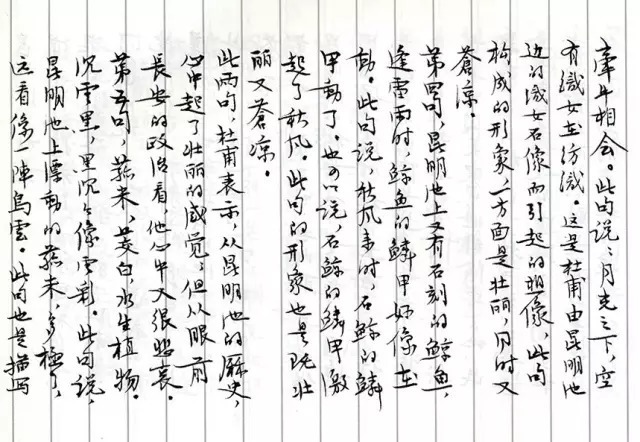 牽牛相会。此句説：月光之下，空
有織女在紡織。这是杜甫由昆明池
边的織女石像而引起的想像，此句
构成的形象，一方面是壮丽，同时又
蒼凉。
第四句，昆明池上又有石刻的鲸鱼，
逢雷雨时，鲸鱼的鱗甲好像在
動。此句説，秋风来时，石鲸的鱗
甲動了。也可以説，石鲸的鱗甲激
起了秋风。此句的形象也是既壮
丽又蒼凉。
此两句，杜甫表示，从昆明池的歷史，
心中起了壮丽的感觉，但从眼前
長安的政治看，他心中又很悲哀。
第五句，菰米，茭白，水生植物。
沉雲黑，黑沉沉像雲彩。此句説，
昆明池上漂動的菰米，多極了，
远看像一陣烏雲。此句也是描写